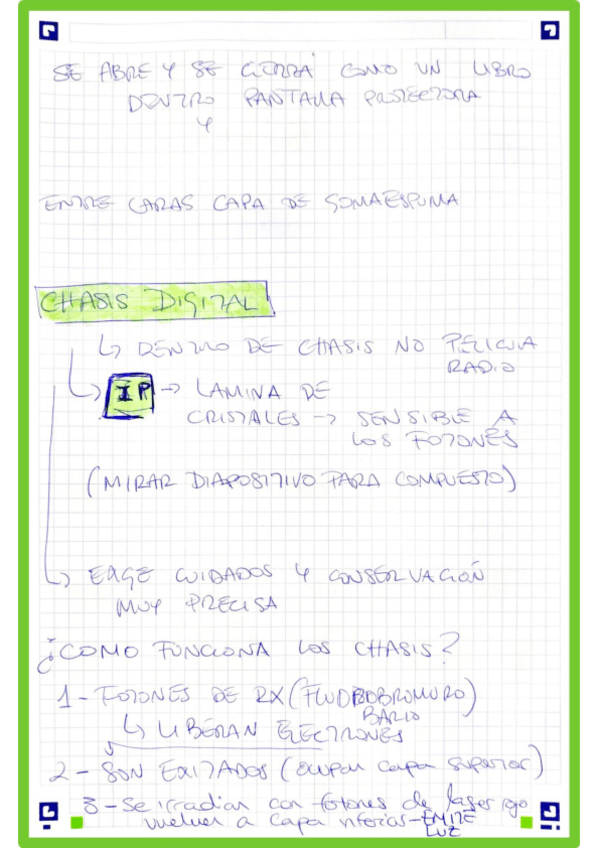 SE ABRE Y SE CIERRA COMO UN LIBRO
DENTRO PANTALLA PROTECTORA
Y
ENTRE CARAS CAPA DE GOMAESPUMA
CHASIS DIGITAL
↳ DENTRO DE CHASIS NO PELICULA
RADIO
↳ IP → LAMINA DE
CRISTALES → SENSIBLE A
LOS FOTONES
(MIRAR DIAPOSITIVO PARA COMPUESTO)
↳ EXIGE CUIDADOS Y CONSERVACIÓN
MUY PRECISA
¿COMO FUNCIONA LOS CHASIS?
1 - FOTONES DE RX (FLUOROBROMURO)
BARIO
↳ LIBERAN ELECTRONES
2 - SON EXITADOS (ocupan capa superior)
3 - Se irradian con fotones de laser rojo
vuelven a capa inferios - EMITE
LUZ